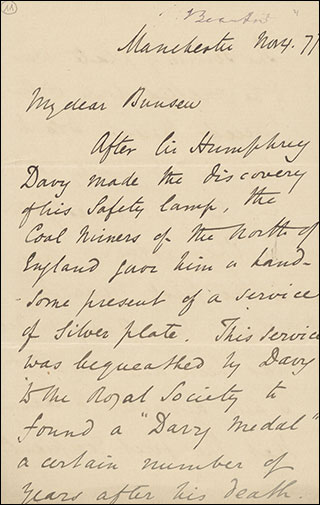 11
Manchester Nov. 7
My dear Bunsen
After Sir Humphrey
Davy made the discovery
of his Safety lamp, the
Coal Miners of the North of
England gave him a hand-
-some present of a service
of Silver plate. This service
was bequeathed by Davy
to the Royal Society to
found a "Davy Medal"
a certain number of
years after his death.